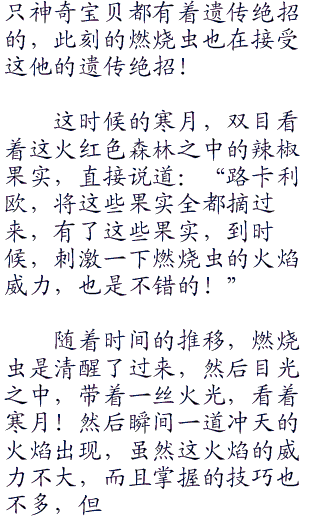 只神奇宝贝都有着遗传绝招
的，此刻的燃烧虫也在接受
这他的遗传绝招！
这时候的寒月，双目看
着这火红色森林之中的辣椒
果实，直接说道：“路卡利
欧，将这些果实全都摘过
来，有了这些果实，到时
候，刺激一下燃烧虫的火焰
威力，也是不错的！”
随着时间的推移，燃烧
虫是清醒了过来，然后目光
之中，带着一丝火光，看着
寒月！然后瞬间一道冲天的
火焰出现，虽然这火焰的威
力不大，而且掌握的技巧也
不多，但